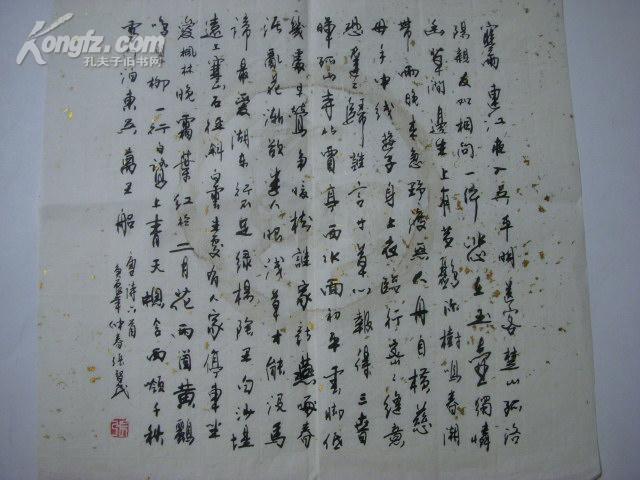 寒雨連江夜入吴平明送客楚山孤洛
陽親友如相問一片冰心在玉壶獨憐
幽草澗邊生上有黄鸝深樹鳴春潮
带雨晚来急野渡無人舟自横慈
母手中线遊子身上衣臨行密密縫意
恐遲遲歸誰言寸草心報得三春
暉孤山寺北賈亭西水面初平雲脚低
幾處早鶯争暖樹誰家新燕啄春
泥亂花漸欲迷人眼浅草才能没馬
蹄最愛湖東行不足绿楊陰里白沙堤
遠上寒山石徑斜白雲生處有人家停車坐
愛楓林晚霜葉红於二月花两個黄鸝
鳴翠柳一行白鷺上青天窗含西嶺千秋
雪門泊東吴萬里船
唐詩六首
年仲春張
張
Kongfz.com
孔夫子旧书网